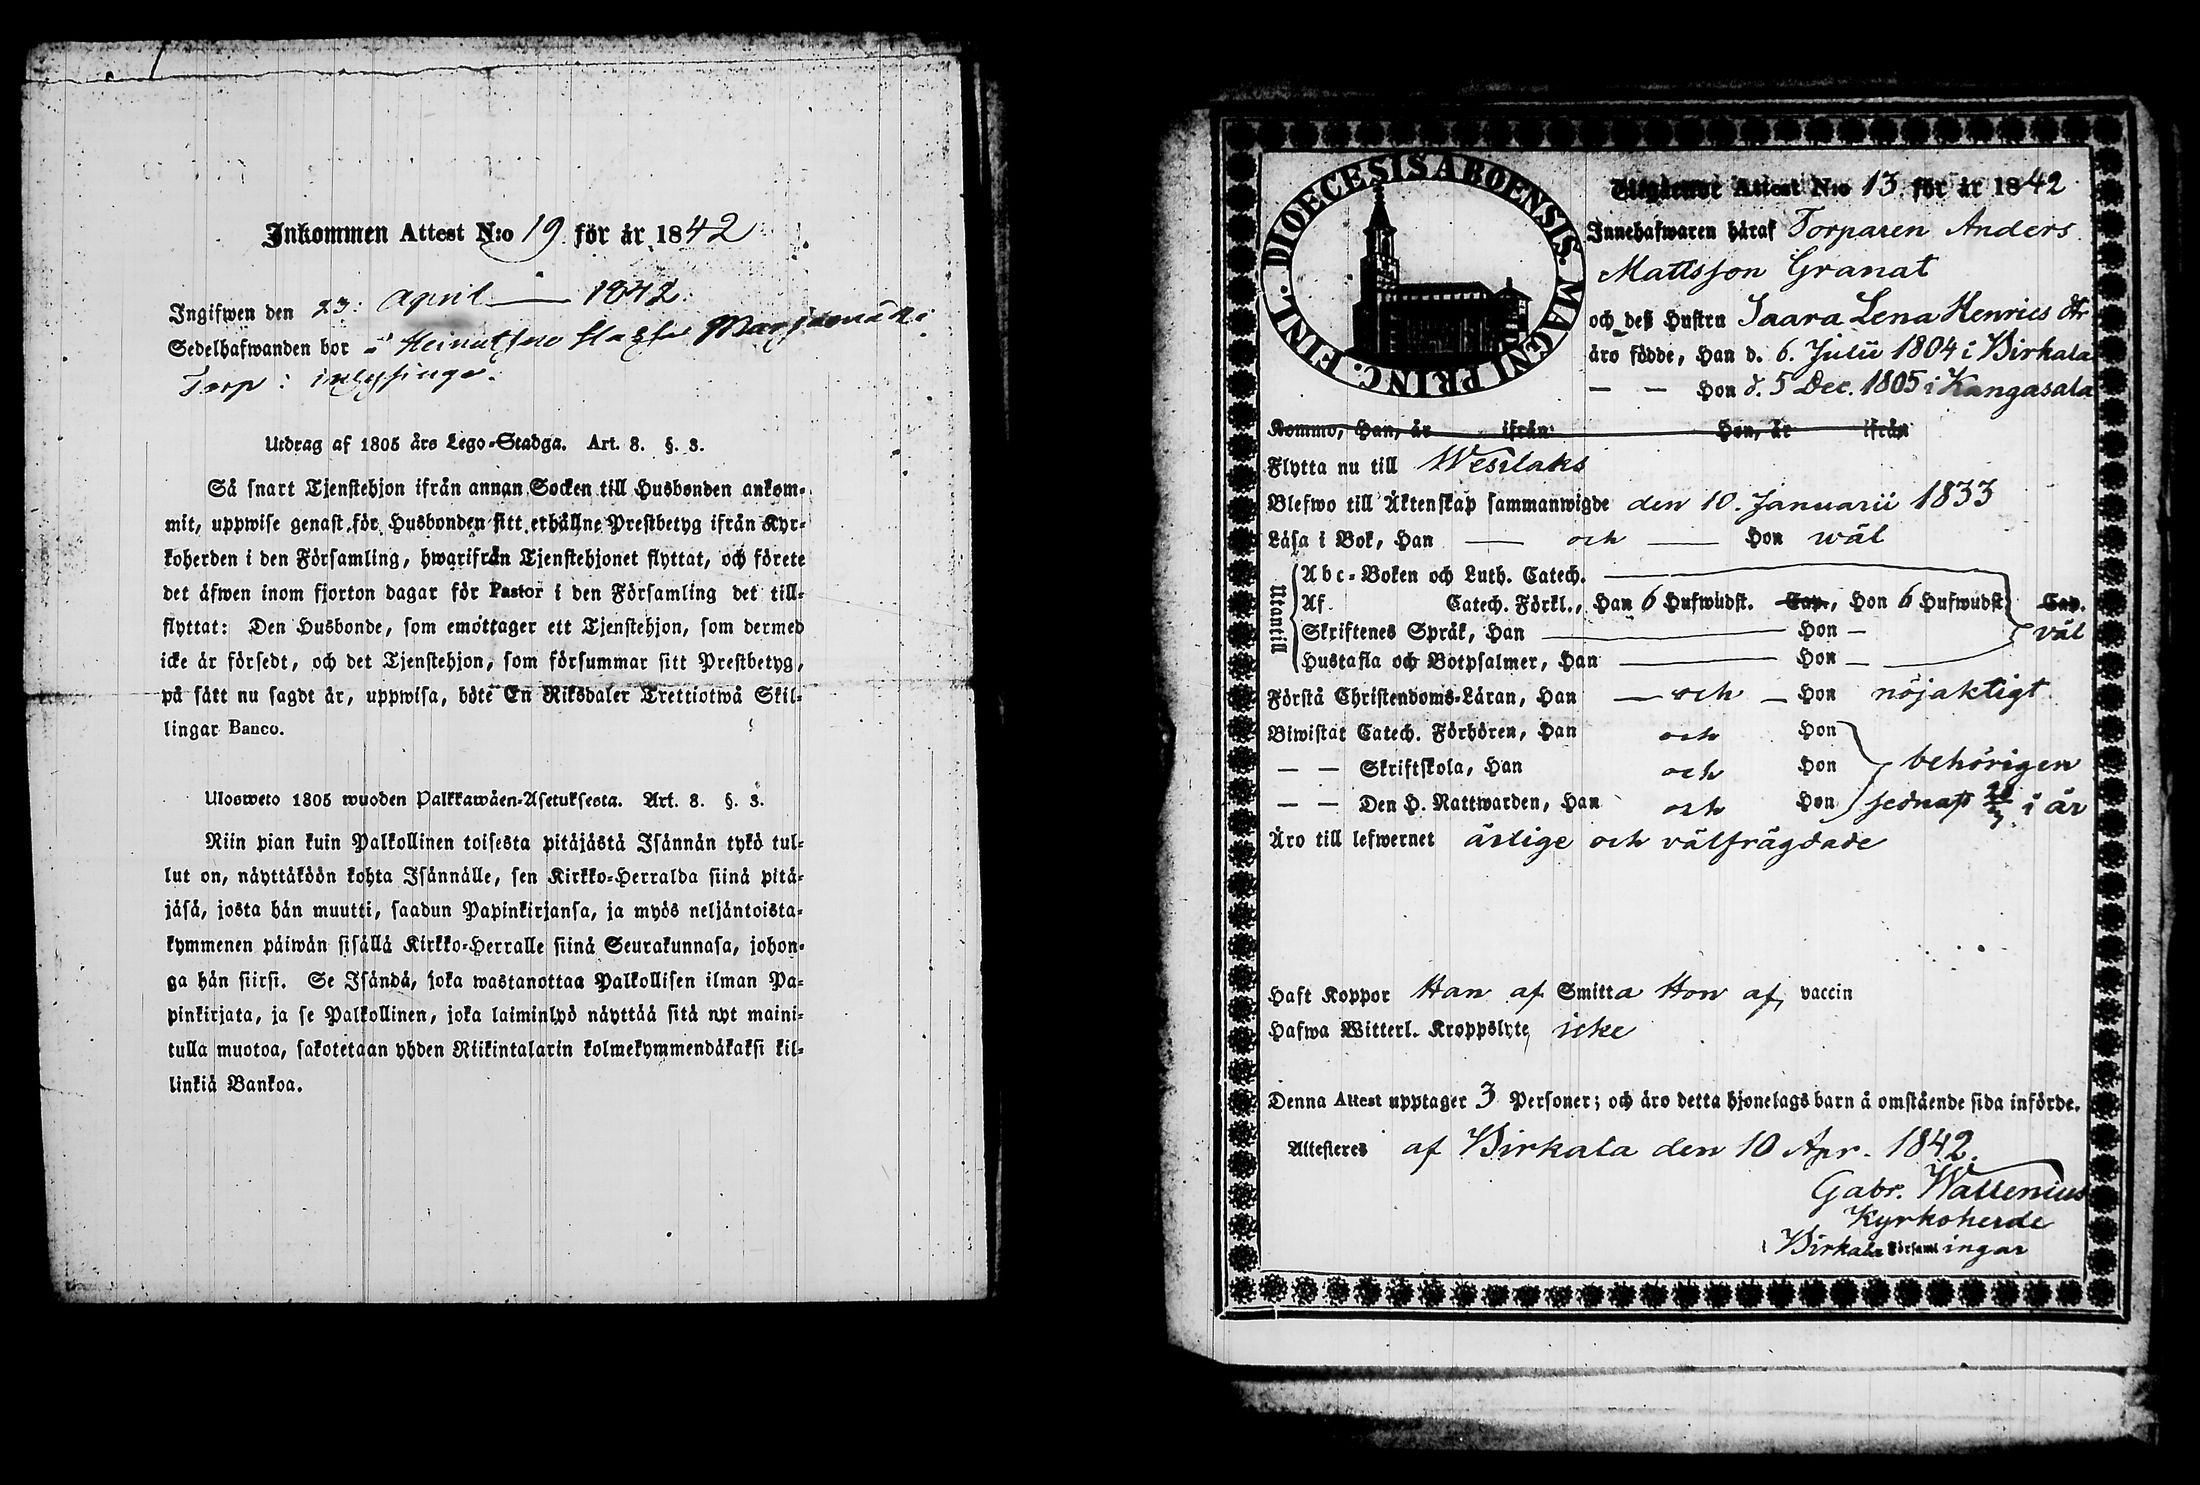 Inkommen Attest N:o 19 för år 1842
Ingifwen den 23: April — 1842.
Sedelhafwanden bor
Torp:
Utdrag af 1805 års Lego-Stadga. Art. 8. §. 3.
Så snart Tjenstehjon ifrån annan Socken till Husbonden ankom-
mit, uppwise genast för Husbonden sitt erhållne Prestbetyg ifrån Kyr-
koherden i den Församling, hwarifrån Tjenstehjonet flyttat, och förete
det äfwen inom fjorton dagar för Pastor i den Församling det till-
flyttat: Den Husbonde, som emottager ett Tjenstehjon, som dermed
icke är försedt, och det Tjenstehjon, som försummar sitt Prestbetyg,
på sätt nu sagdt är, uppwisa, böte En Riksdaler Trettiotwå Skil-
lingar Banco.
Ulosweto 1805 wuoden Palkkawäen-Asetuksesta. Art. 8. §. 3.
Niin pian kuin Palkollinen toisesta pitäjästä Isännän tykö tul-
lut on, näyttäköön kohta Isännälle, sen Kirkko-Herralda siinä pitä-
jäsä, josta hän muutti, saadun Papinkirjansa, ja myös neljäntoista-
kymmenen päiwän sisällä Kirkko-Herralle siinä Seurakunnasa, johon-
ga hän siirsi. Se Isändä, joka wastanottaa Palkollisen ilman Pa-
pinkirjata, ja se Palkollinen, joka laiminlyö näyttää sitä nyt maini-
tulla muotoa, sakotetaan yhden Riikintalarin kolmekymmendäkaksi kil-
linkiä Bankoa.
DIOECESIS ABOENSIS. MAGNI PRINC. FINL.
Utgående Attest N:o 13 för år 1842
Innehafwaren häraf Torparen Anders
Mattsson Granat
och deß Hustru Saara Lena Henrics dtr
äro födde, Han d. 6. Julii 1804 i Birkala
— — Hon d. 5 Dec. 1805 i Kangasala
Kommo, Han, år ifrån Hon, år ifrån
Flytta nu till Wesilaks
Blefwo till Äktenskap sammanwigde den 10. Januarii 1833
Läsa i Bok, Han — och — Hon wäl
Utantill
Abc-Boken och Luth. Catech. —
Af Catech. Förkl., Han 6 Hufwudst. Cap., Hon 6 Hufwudst. Cap.
Skriftenes Språk, Han — Hon — väl
Hustafla och Botpsalmer, Han — Hon —
Förstå Christendoms-Läran, Han — och — Hon nöjaktigt
Biwistat Catech. Förhören, Han och Hon
— — Skriftskola, Han och Hon behörigen
— — Den H. Nattwarden, Han och Hon sednast i år
Äro till lefwernet ärlige och välfrägdade
Haft Koppor Han af Smitta Hon af vaccin
Hafwa Witterl. Kroppslyte icke
Denna Attest upptager 3 Personer; och äro detta hjonelags barn å omstående sida införde.
Attesteres af Birkala den 10 Apr. 1842.
Gabr. Wallenius
Kyrkoherde
i Birkala Församlingar